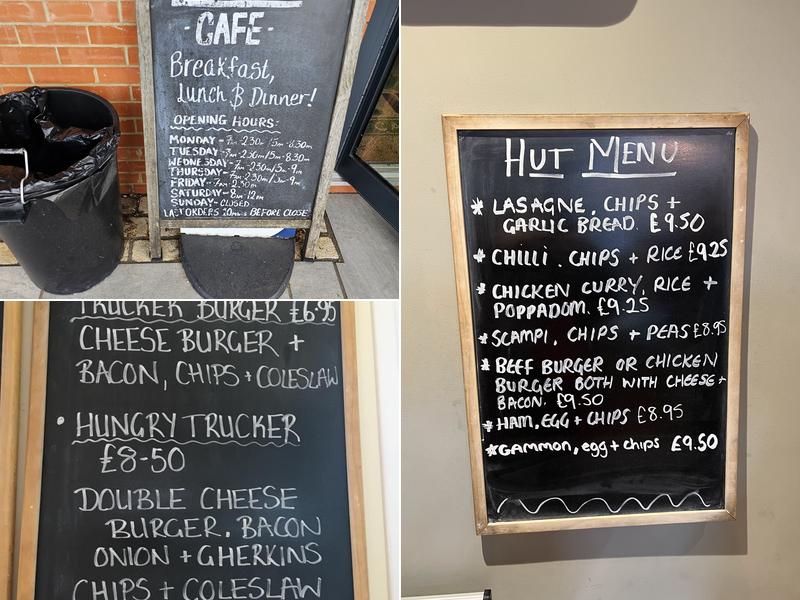 - CAFE -
Breakfast,
Lunch & Dinner!
OPENING HOURS:
MONDAY - 7am - 2.30pm / 5pm - 8.30pm
TUESDAY - 7am - 2.30pm / 5pm - 8.30pm
WEDNESDAY - 7am - 2.30pm / 5pm - 9pm
THURSDAY - 7am - 2.30pm / 5pm - 9pm
FRIDAY - 7am - 2.30pm
SATURDAY - 8am - 12pm
SUNDAY - CLOSED
LAST ORDERS 10mins BEFORE CLOSE
TRUCKER BURGER £6.95
CHEESE BURGER +
BACON, CHIPS + COLESLAW
• HUNGRY TRUCKER
£8-50
DOUBLE CHEESE
BURGER. BACON
ONION + GHERKINS
CHIPS + COLESLAW
HUT MENU
* LASAGNE, CHIPS +
GARLIC BREAD. £9.50
* CHILLI, CHIPS + RICE £9.25
* CHICKEN CURRY, RICE +
POPPADOM. £9.25
* SCAMPI, CHIPS + PEAS £8.95
* BEEF BURGER OR CHICKEN
BURGER BOTH WITH CHEESE +
BACON. £9.50
* HAM, EGG + CHIPS £8.95
* GAMMON, egg + chips £9.50